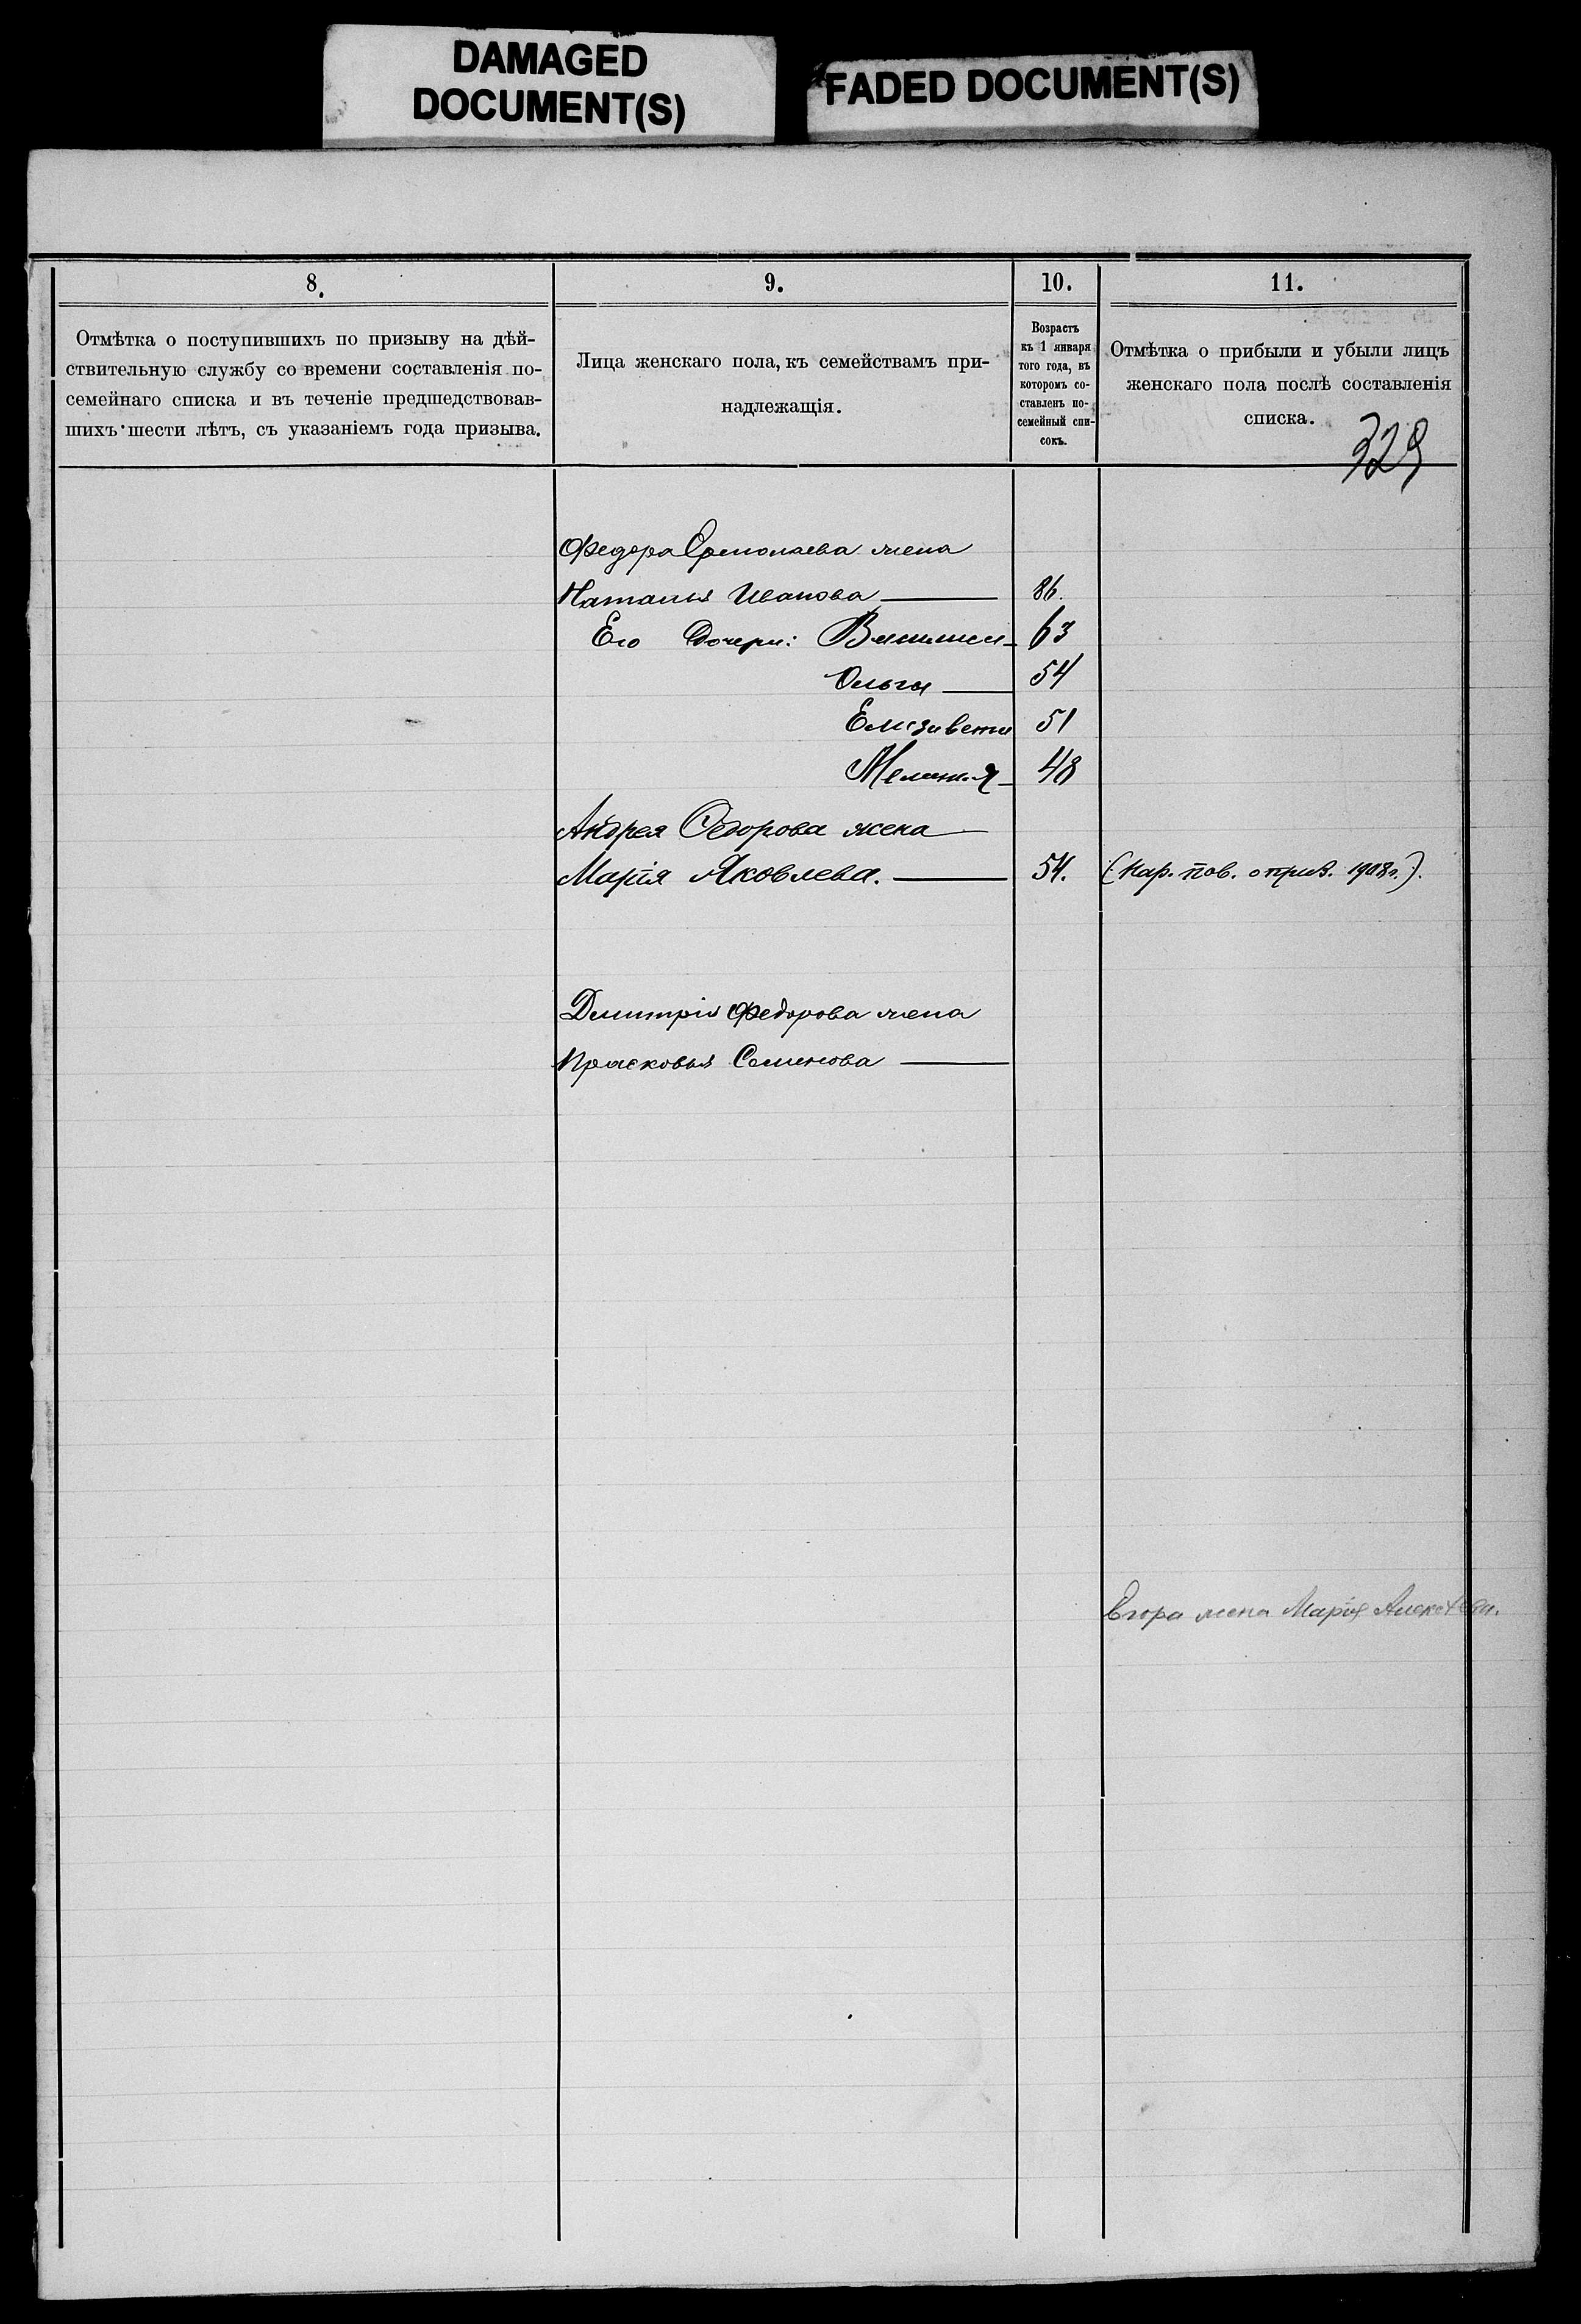 DAMAGED
DOCUMENT(S)
FADED DOCUMENT(S)
8.
Отмѣтка о поступившихъ по призыву на дѣй-
ствительную службу со времени составленія по-
семейнаго списка и въ теченіе предшедствовав-
шихъ шести лѣтъ, съ указаніемъ года призыва.
9.
Лица женскаго пола, къ семействамъ при-
надлежащія.
10.
Возрастъ
къ 1 января
того года, въ
которомъ со-
ставленъ по-
семейный спи-
сокъ.
11.
Отмѣтка о прибыли и убыли лицъ
женскаго пола послѣ составленія
списка.
329
Федора Ермолаева жена
Наталья Иванова 86.
Его Дочери: 63
Ольга 54
Елизавета 51
Меланія 48
Андрея Ѳедорова жена
Марія Яковлева. 54. (Нар. пов. о приз. 1908 г.).
Дмитрія Федорова жена
Прасковья Семенова
Егора жена Марія Алексѣева.